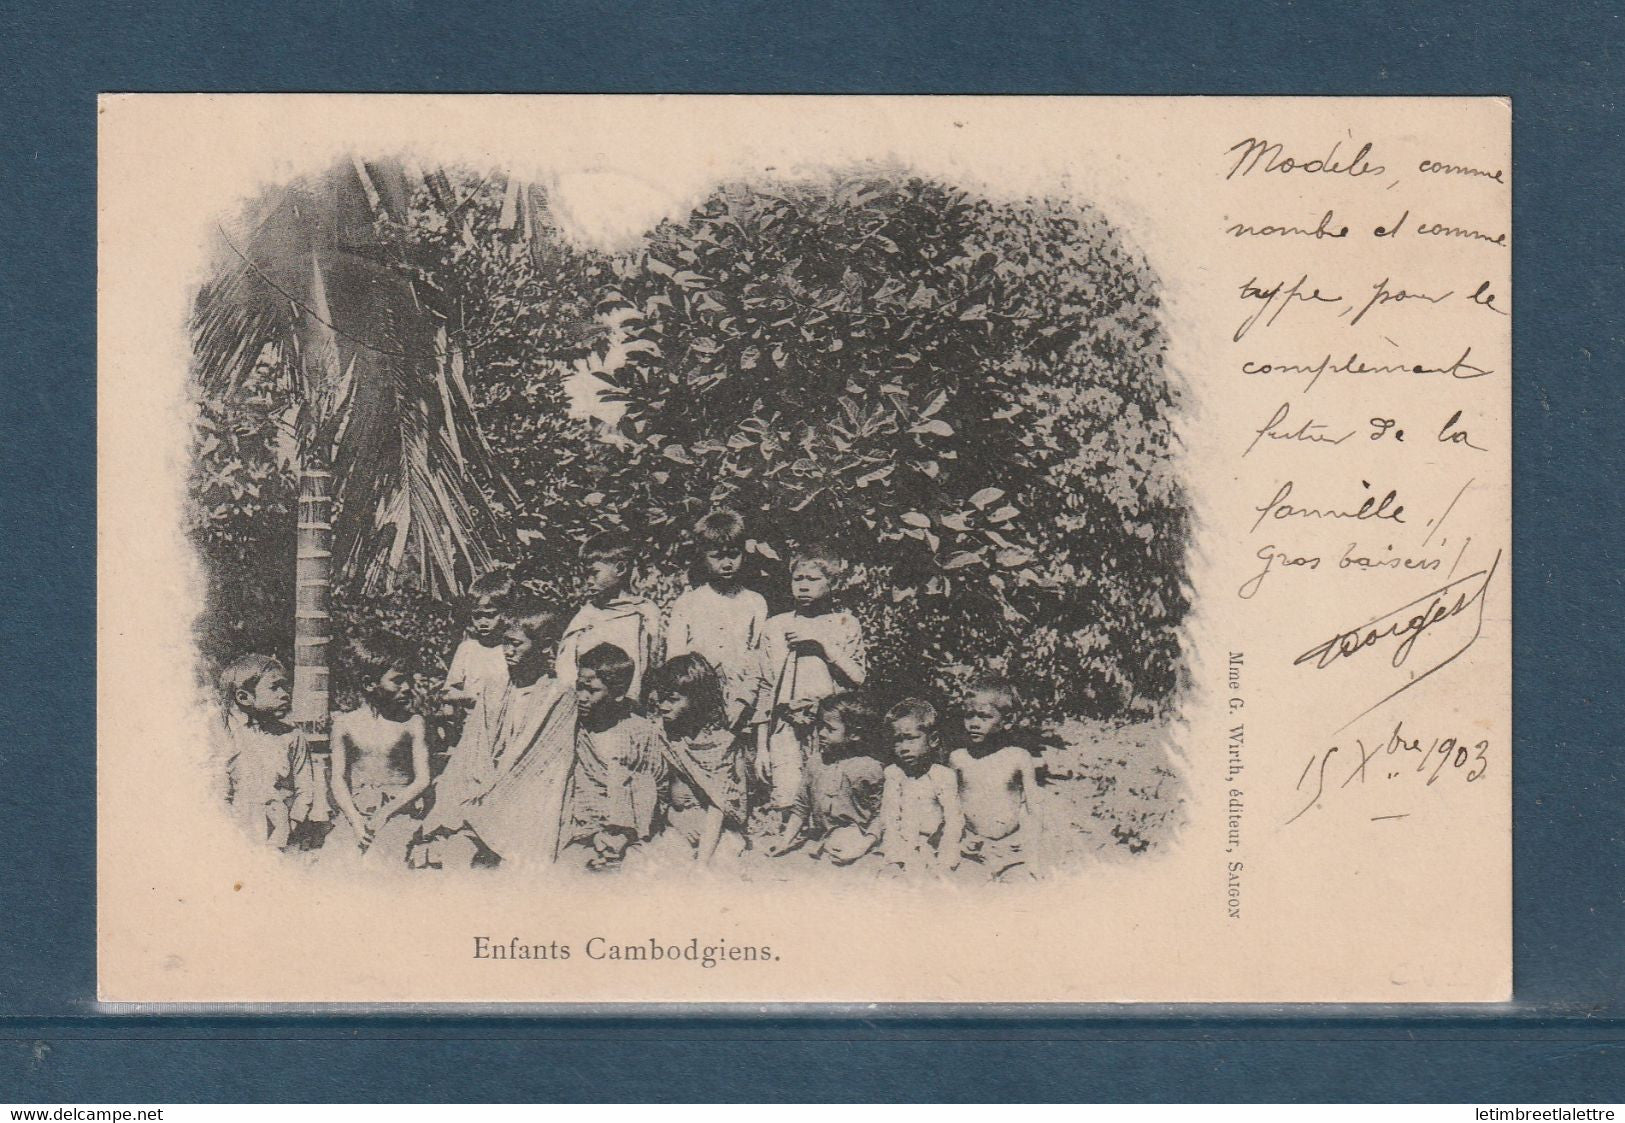 Modèles, comme
nombre et comme
type, pour le
complèment
futur de la
famille !
Gros baisers !
Georges
15 Xbre 1903
Mme G. Wirth, éditeur, SAIGON
Enfants Cambodgiens.
www.delcampe.net
letimbreetlalettre